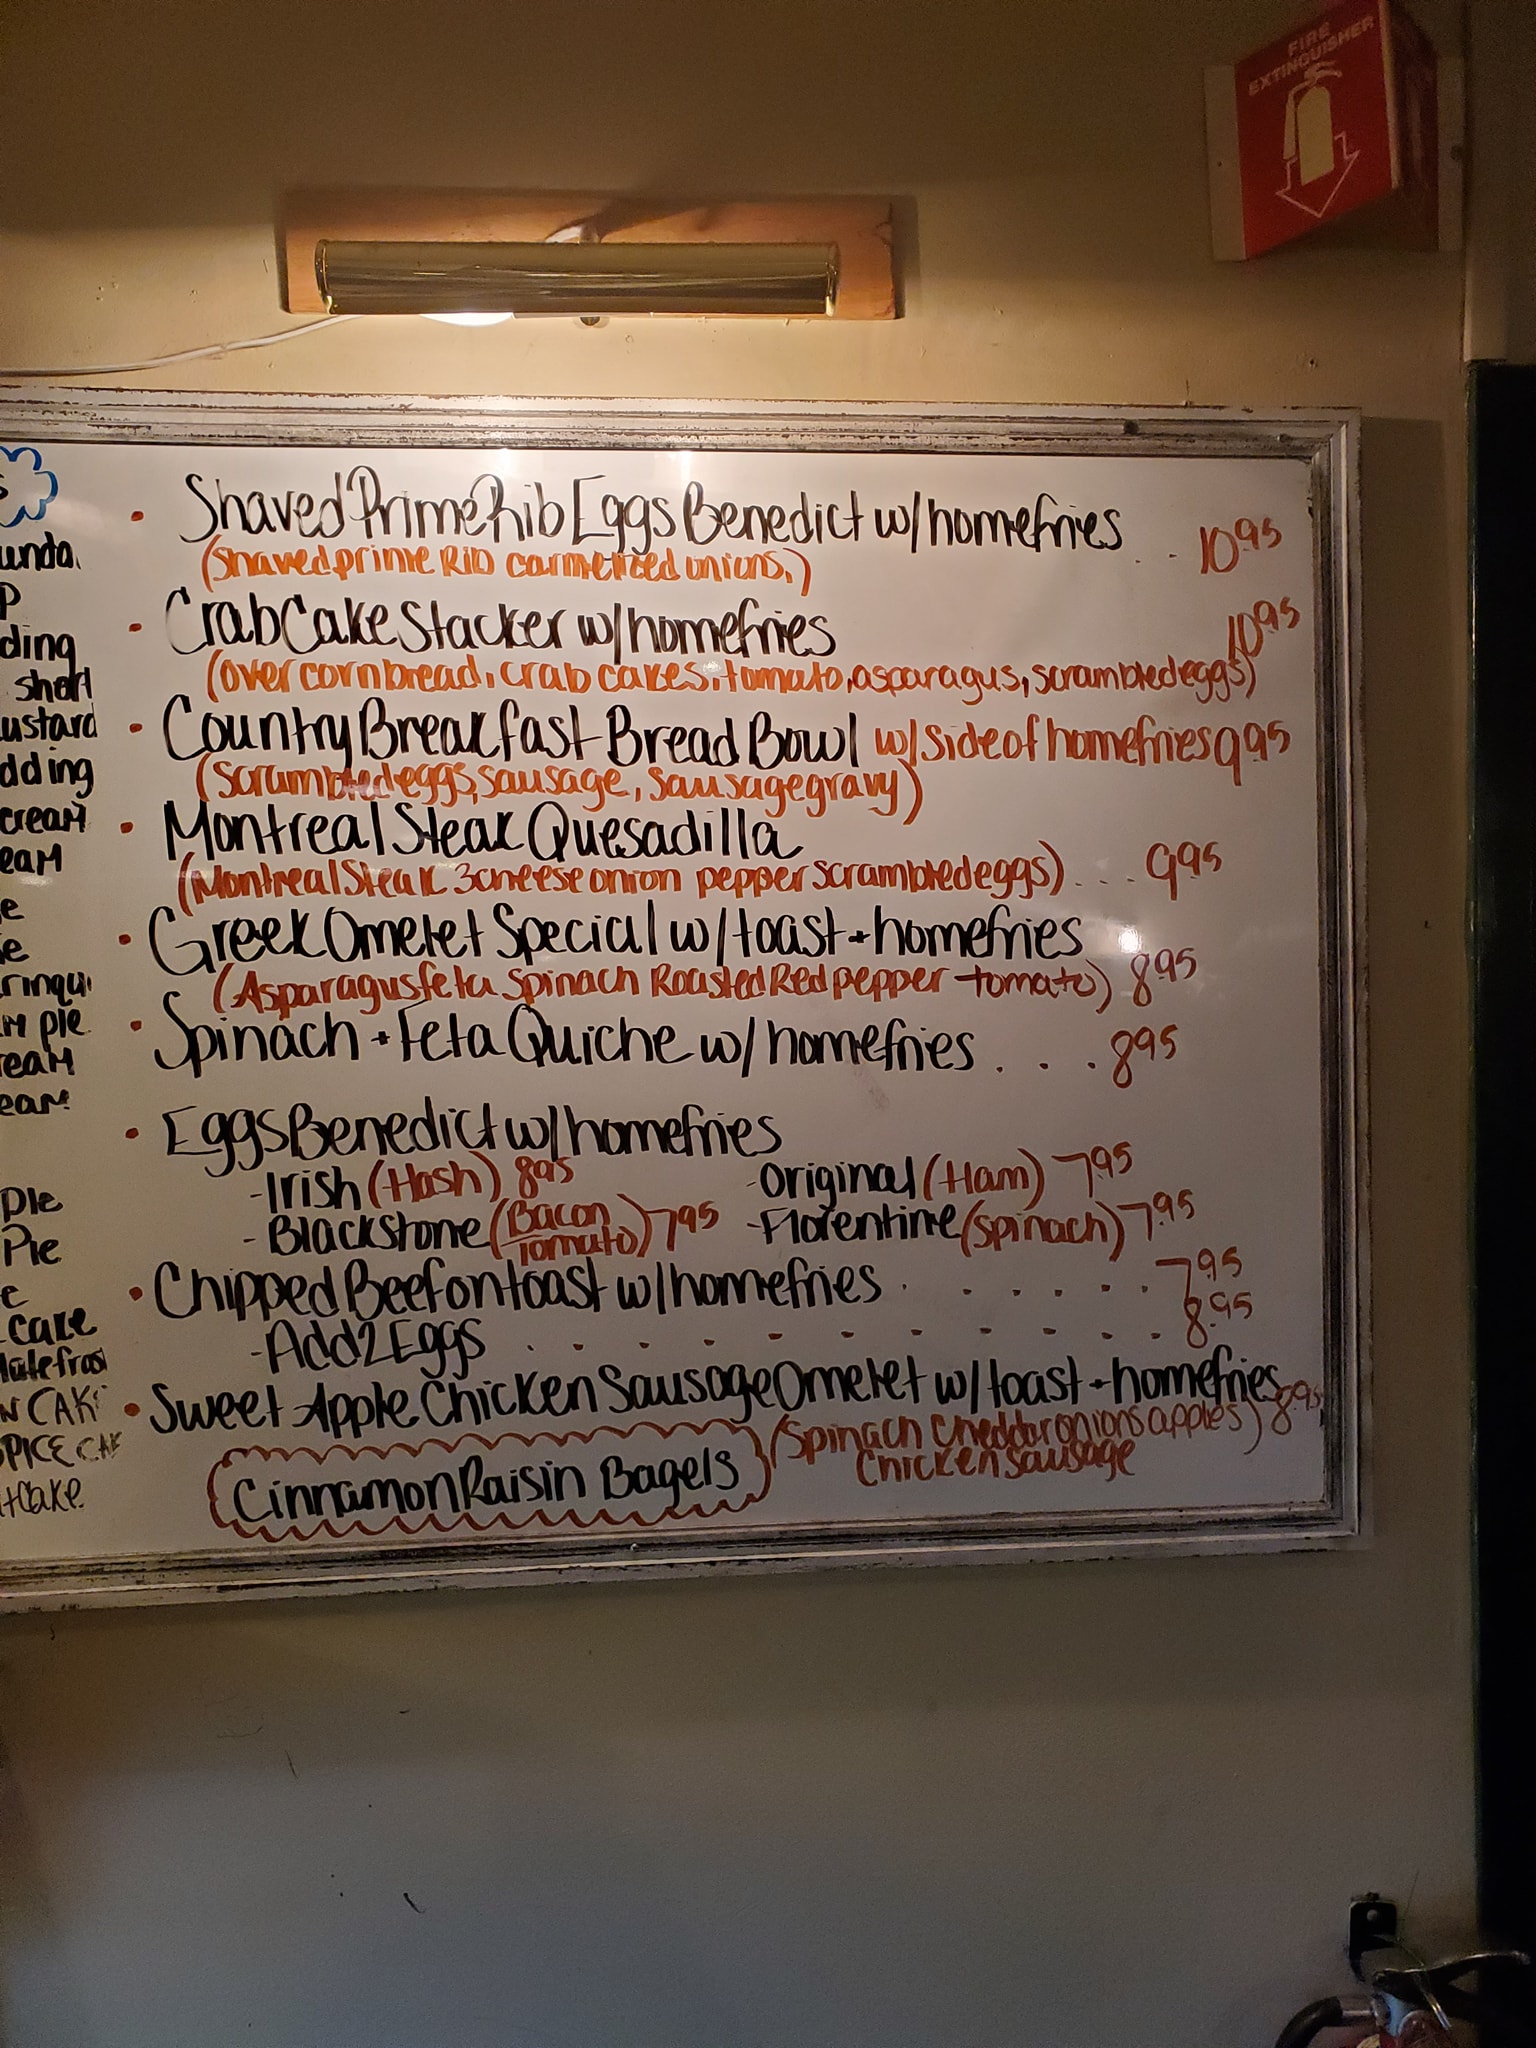 FIRE
EXTINGUISHER
s
unda.
P
ding
short
ustard
dding
cream
eam
e
e
m pie
ream
eam
Pie
Pie
e
cake
N CAKE
SPICE CAK
t cake
• Shaved Prime Rib Eggs Benedict w/homefries . . 10.95
(shaved prime Rib carmelized onions,)
• Crab Cake Stacker w/homefries 10.95
(over cornbread, crab cakes, tomato, asparagus, scrambled eggs)
• Country Breakfast Bread Bowl w/side of homefries 9.95
(Scrambled eggs, sausage, sausage gravy)
• Montreal Steak Quesadilla
(Montreal Steak 3 cheese onion pepper scrambled eggs) . . . 9.95
• Greek Omelet Special w/toast + homefries
(Asparagus feta Spinach Roasted Red pepper tomato) 8.95
• Spinach + Feta Quiche w/homefries . . . 8.95
• Eggs Benedict w/homefries
- Irish (Hash) 8.95 - Original (Ham) 7.95
- Blackstone (Bacon Tomato) 7.95 - Florentine (spinach) 7.95
• Chipped Beef on toast w/homefries . . . . . . 7.95
- Add 2 Eggs . . . . . . . . . . 8.95
• Sweet Apple Chicken Sausage Omelet w/toast + homefries 8.95
(Spinach Cheddar onions apples)
Chicken sausage
Cinnamon Raisin Bagels